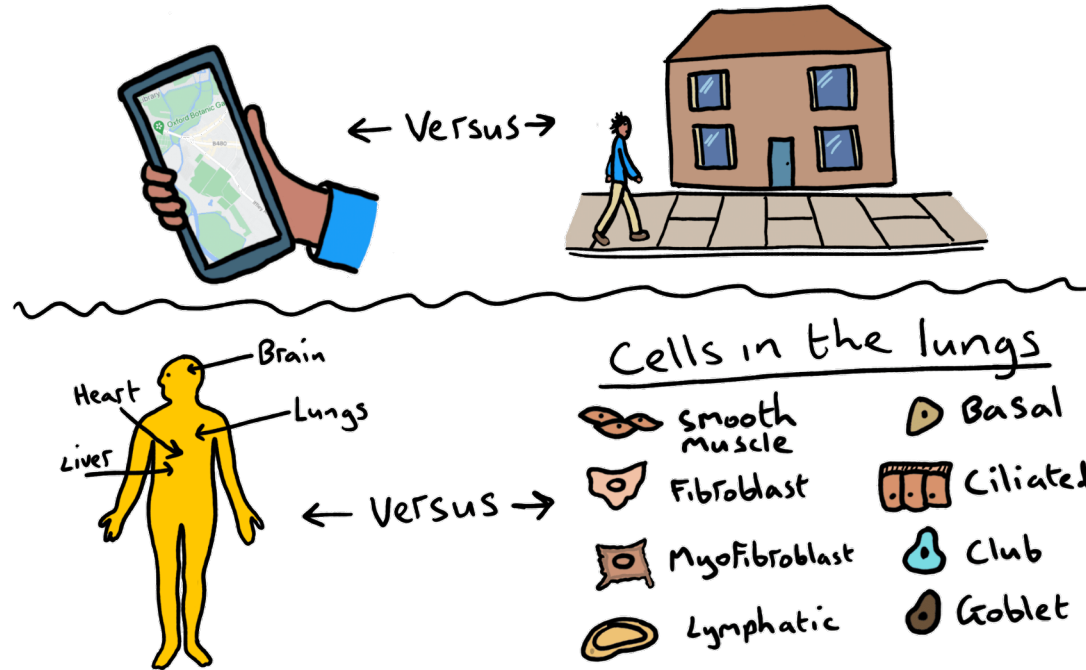 library
Oxford Botanic Ga
B480
← Versus →
Brain
Heart
Lungs
Liver
← Versus →
Cells in the lungs
Smooth
muscle
Fibroblast
Myofibroblast
Lymphatic
Basal
Ciliated
Club
Goblet